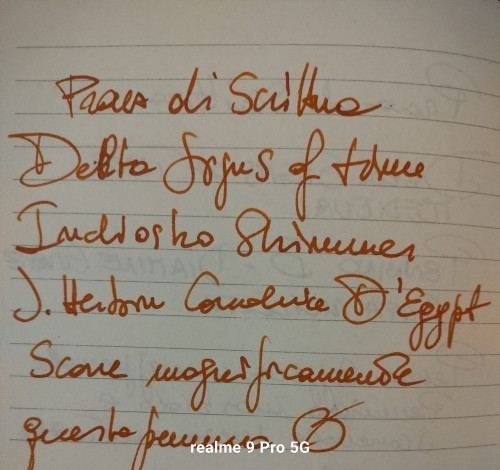 Prova di Scrittura
Delta Sogus of time
Indiosko Shimmer
J. Herbin Cornaline D'Egypt
Scorre magnificamente
questo pennino
realme 9 Pro 5G